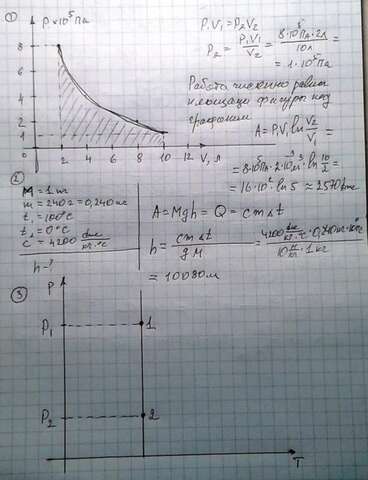 ①
P, ×10⁵Па
8
6
4
2
1
0
2 4 6 8 10 V, л
P₁V₁ = P₂V₂
P₂ = P₁V₁/V₂ = 8·10⁵Па·2л/10л =
= 1·10⁵Па
Работа численно равна
площади фигуры под
графиком
A = P₁V₁ ln V₂/V₁ =
= 8·10⁵Па·2·10⁻³м³·ln 10/2 =
= 16·10²·ln 5 ≈ 2570 Дж
②
M = 1 кг
m = 240 г = 0,240 кг
t₁ = 100°C
t₂ = 0°C
c = 4200 Дж/кг·°C
h - ?
A = Mgh = Q = cmΔt
h = cmΔt/gM = 4200 Дж/кг·°C · 0,240 кг · 100°C / 10 Н/кг · 1 кг
= 10080 м
③
P
P₁
1
P₂
2
T